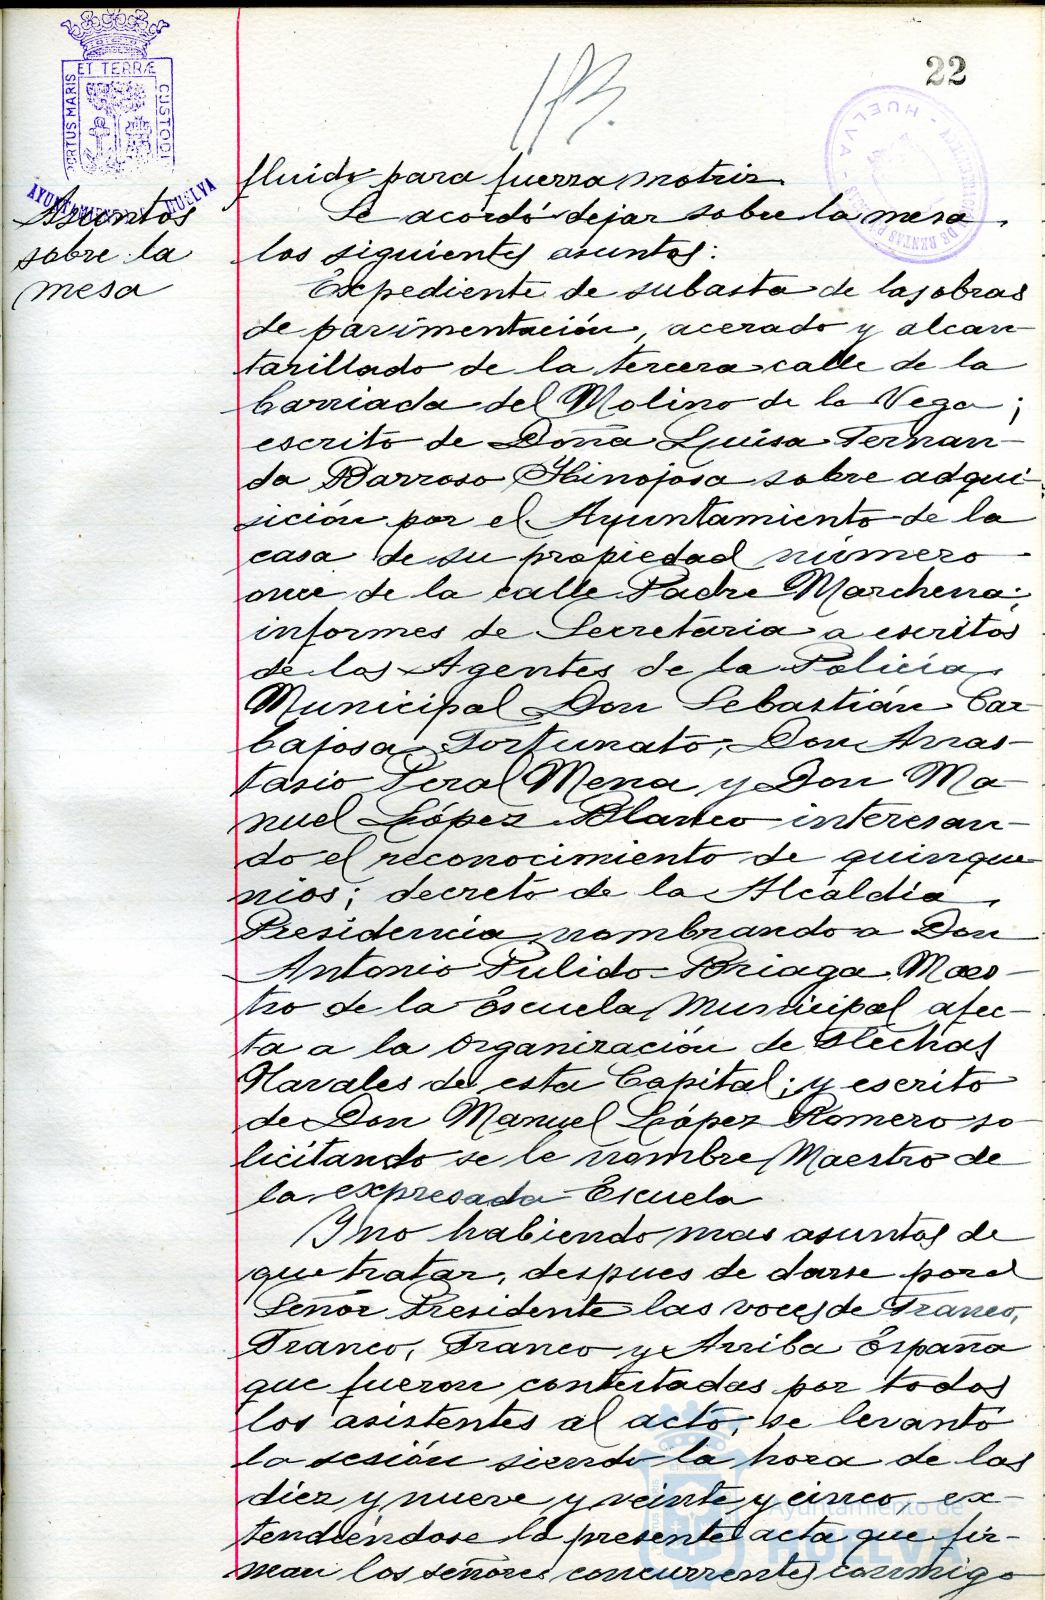 22
173.
ET TERRÆ
PORTUS MARIS
CUSTODI
AYUNTAMIENTO DE HUELVA
HUELVA
DE RENTAS PUBLICAS
Asuntos
sobre la
mesa
fluido para fuerza motriz.
Se acordó dejar sobre la mesa
los siguientes asuntos:
Expediente de subasta de las obras
de pavimentación, acerado y alcan-
tarillado de la tercera calle de la
barriada del Molino de la Vega;
escrito de Doña Luisa Fernan-
da Barroso Hinojosa sobre adqui-
sición por el Ayuntamiento de la
casa de su propiedad número
once de la calle Padre Marchena;
informes de Secretaria a escritos
de los Agentes de la Policía
Municipal Don Sebastián Car-
bajosa Fortunato, Don Anas-
tasio Peral Mena y Don Ma-
nuel López Blanco interesan-
do el reconocimiento de quinque-
nios; decreto de la Alcaldía
Presidencia nombrando a Don
Antonio Pulido Briaga Maes-
tro de la Escuela Municipal afec-
ta a la Organización de Flechas
Navales de esta Capital; y escrito
de Don Manuel López Romero so-
licitando se le nombre Maestro de
la expresada Escuela
Y no habiendo mas asuntos de
que tratar, despues de darse por el
Señor Presidente las voces de Franco,
Franco, Franco y Arriba España
que fueron contestadas por todos
los asistentes al acto, se levantó
la sesión siendo la hora de las
diez y nueve y veinte y cinco, ex-
tendiéndose la presente acta que fir-
man los señores concurrentes conmigo
Ayuntamiento de
HUELVA